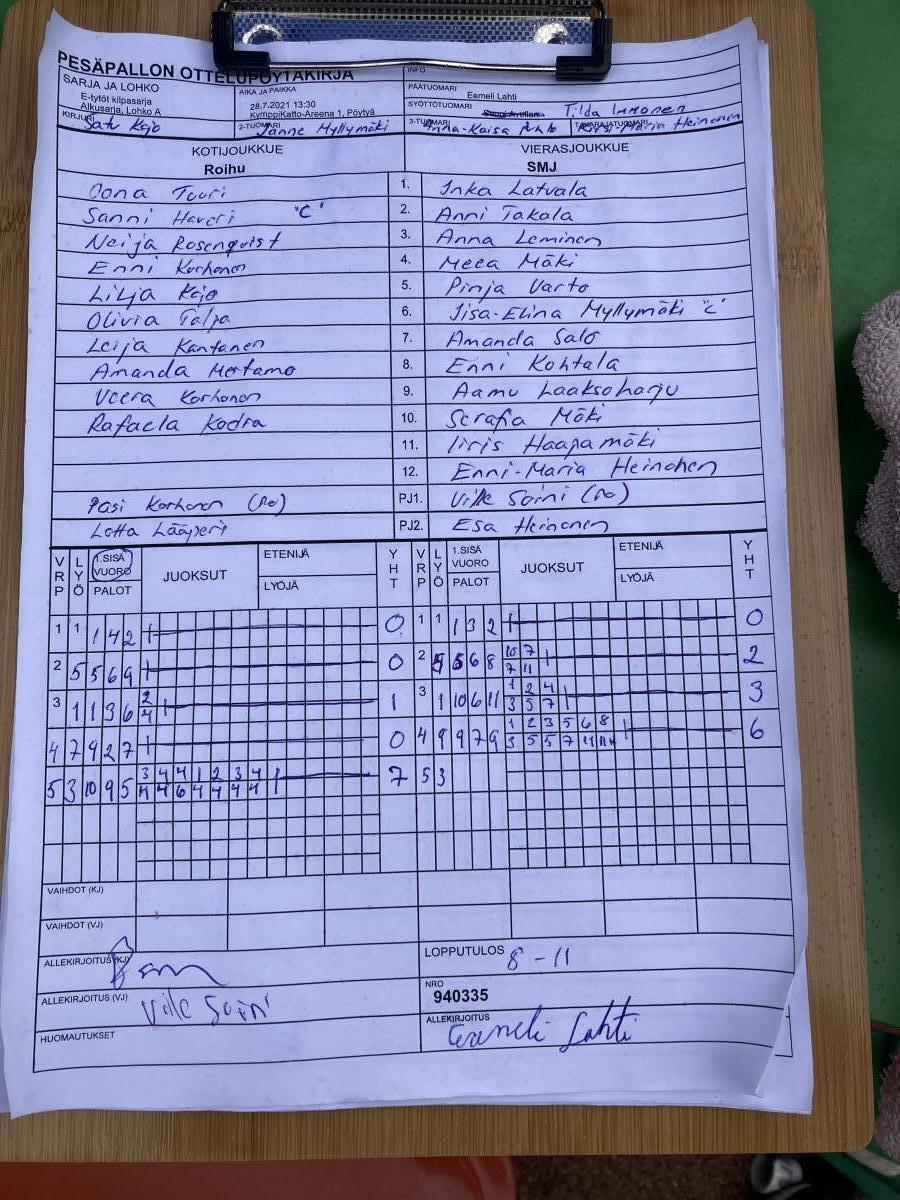 PESÄPALLON OTTELUPÖYTÄKIRJA
SARJA JA LOHKO
E-tytöt kilpasarja
Alkusarja, Lohko A
AIKA JA PAIKKA
28.7.2021 13:30
KymppiKatto-Areena 1, Pöytyä
INFO
PÄÄTUOMARI
Eemeli Lahti
SYÖTTÖTUOMARI
KIRJURI
Satu Kajo
2-TUOMARI
Janne Myllymäki
3-TUOMARI
Anna-Kaisa
TAKARAJATUOMARI
Kirsi-Maria Heinonen
KOTIJOUKKUE VIERASJOUKKUE
Roihu SMJ
Oona Tuuri 1. Inka Latvala
Sanni Haveri "C" 2. Anni Takala
Neija Rosenqvist 3. Anna Leminen
Enni Korhonen 4. Meea Mäki
Lilja Kajo 5. Pinja Varto
Olivia Talja 6. Iisa-Elina Myllymäki "C"
Leija Kantanen 7. Amanda Salo
Amanda 8. Enni Kohtala
Veera Korhonen 9. Aamu Laaksoharju
Rafaela Kodra 10. Serafia Mäki
11. Iiris Haapamäki
12. Enni-Maria Heinonen
Pasi Korhonen PJ1. Ville Soini
Lotta Lääperi PJ2. Esa Heinonen
VRP LYÖ 1.SISÄ VUORO PALOT JUOKSUT ETENIJÄ LYÖJÄ YHT VRP LYÖ 1.SISÄ VUORO PALOT JUOKSUT ETENIJÄ LYÖJÄ YHT
1 1 1 4 2 0 1 1 1 3 2 0
2 5 5 6 9 0 2 5 5 6 8 10 7 2
7 11
3 1 1 3 6 2 1 3 1 10 6 11 1 2 4 3
4 3 5 7
4 7 9 2 7 0 4 9 9 7 9 1 2 3 5 6 8 6
3 5 5 7 11
5 3 10 9 5 3 4 4 1 2 3 4 7 5 3
4 4 6 4 4 4 4
VAIHDOT (KJ)
VAIHDOT (VJ)
ALLEKIRJOITUS (KJ)
LOPPUTULOS 8 - 11
ALLEKIRJOITUS (VJ) Ville Soini
NRO
940335
HUOMAUTUKSET
ALLEKIRJOITUS
Eemeli Lahti